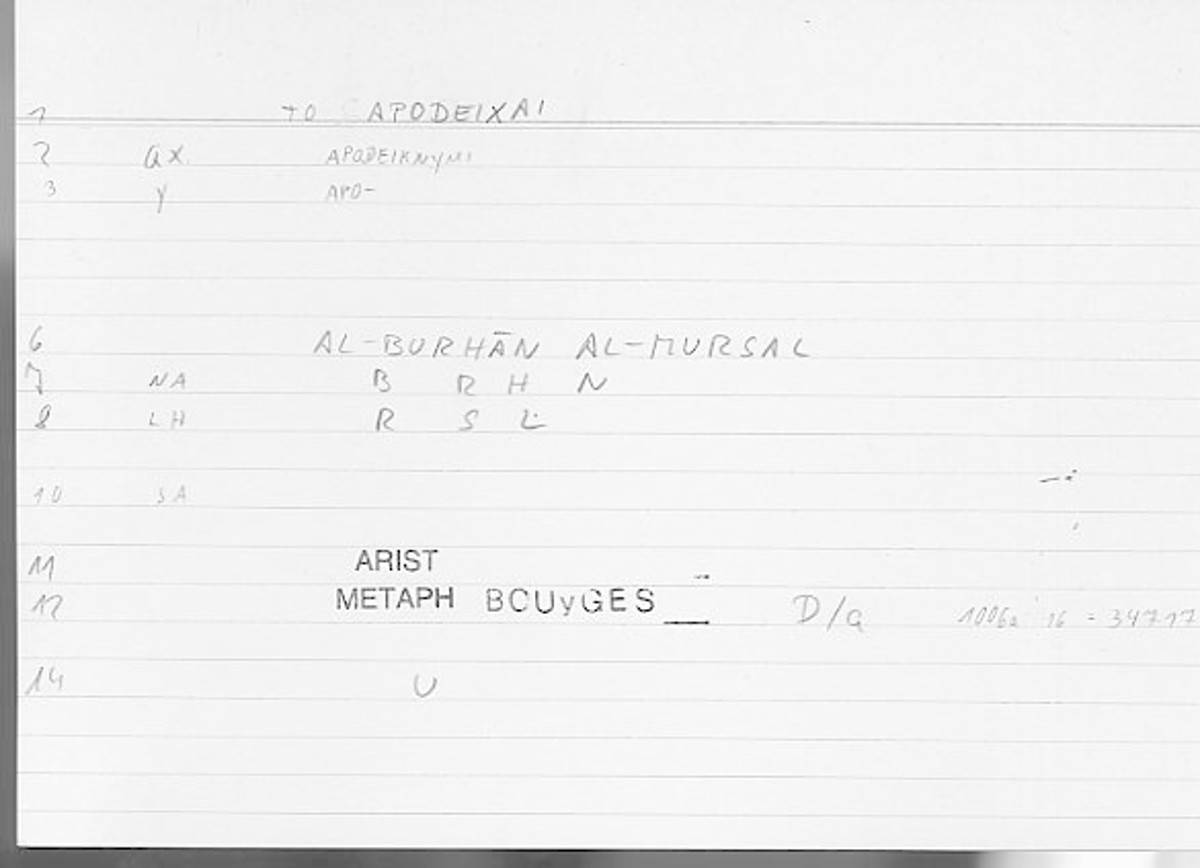 1 TO APODEIXAI
2 QX. APODEIKNYMI
3 Y APO-
6 AL-BURHĀN AL-MURSAL
7 NA B R H N
8 LH R S L
10 SA
11 ARIST
12 METAPH BOUyGES __ D/G 1006a 16 = 34717
14 U